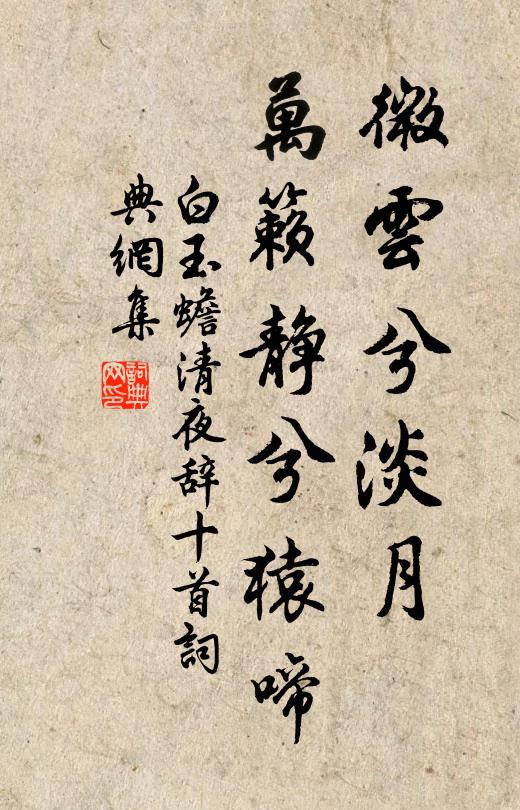 微雲兮淡月
萬籟靜兮猿啼
白玉蟾清夜辞十首詞
典網集
詞典网印